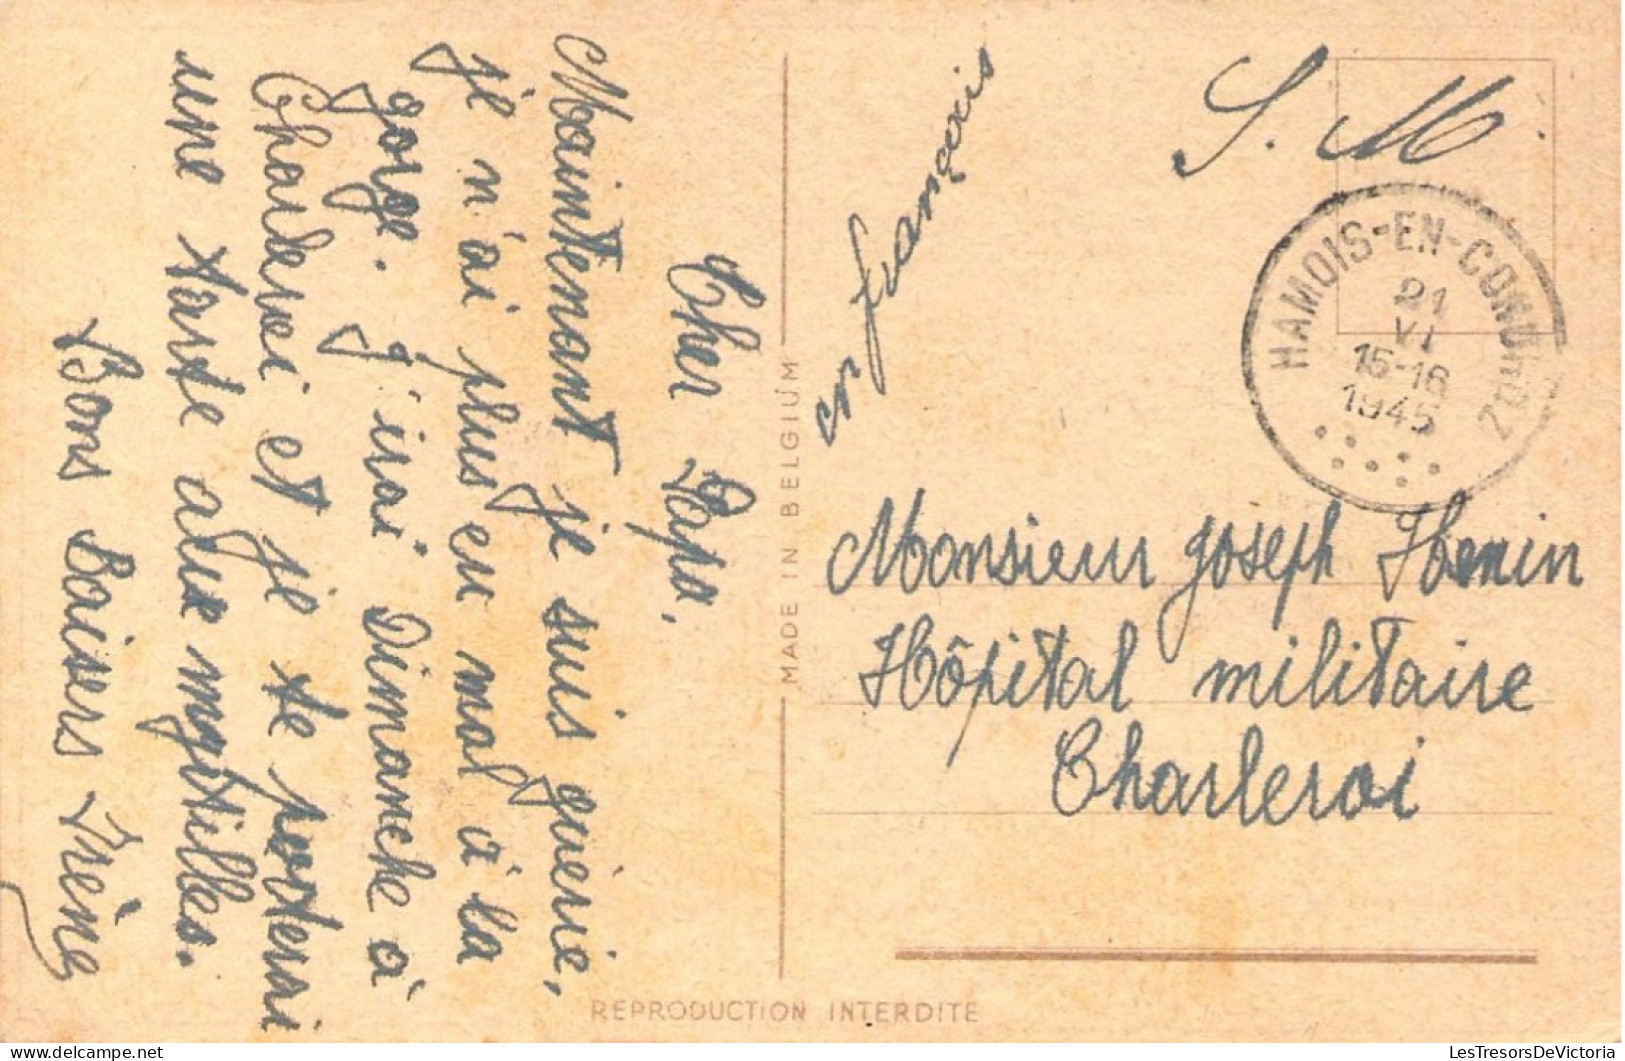 Cher Papa,
Maintenant je suis guérie,
je n'ai plus eu mal à la
gorge. j'irai Dimanche à
Charleroi et je te porterai
une tarte aux mytilles.
Bons Baisers Irène
MADE IN BELGIUM
REPRODUCTION INTERDITE
en français
S. M.
HAMOIS-EN-CONDROZ
21
VI
15-16
1945
Monsieur Joseph Henin
Hôpital militaire
Charleroi
www.LesTresorsDeVictoria.com